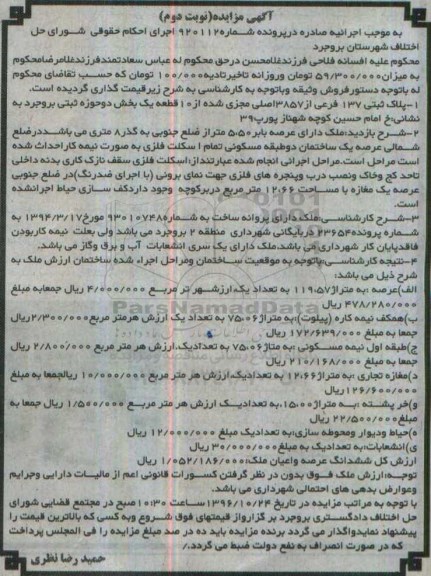 آگهی مزایده(نوبت دوم)
به موجب اجرائیه صادره درپرونده شماره۹۲۰۱۱۲ اجرای احکام حقوقی شورای حل
اختلاف شهرستان بروجرد
محکوم علیه افسانه فلاحی فرزندغلامحسن درحق محکوم له عباس سعادتمندفرزندغلامرضامحکوم
به میزان۵۹/۳۰۰/۰۰۰ تومان وروزانه تاخیرتادیه۱۰۰/۰۰۰ تومان که حسب تقاضای محکوم
له باتوجه دستورفروش وثیقه وباتوجه به کارشناسی به شرح زیرقیمت گذاری گردیده است.
۱-پلاک ثبتی ۱۳۷ فرعی از۳۸۵۷اصلی مجزی شده از۱۰قطعه یک بخش دوحوزه ثبتی بروجرد به
نشانی:خ امام حسین کوچه شهناز پورپ۳۹
۲-شرح بازدید:ملک دارای عرصه بابر۵.۵۰ متراز ضلع جنوبی به گذر۸ متری می باشددرضلع
شمالی عرصه یک ساختمان دوطبقه مسکونی تمام اسکلت فلزی به صورت نیمه کاراحداث شده
است مراحل است.مراحل اجرائی انجام شده عبارتنداز:اسکلت فلزی سقف نازک کاری بدنه داخلی
تاحد گچ وخاک ونصب درب وپنجره های فلزی جهت نمای برونی (با اجرای ضدرنگ)در ضلع جنوبی
عرصه یک مغازه با مساحت ۱۲.۶۶ متر مربع دربرکوچه وجود داردکف سازی حیاط اجرانشده
است.
۳-شرح کارشناسی:ملک دارای پروانه ساخت به شماره۹۳۰۱۰۷۴۸ مورخ۱۳۹۴/۳/۱۷ به
شماره پرونده۲۳۶۵۴ دربایگانی شهرداری منطقه ۲ بروجرد می باشد ولی بعلت نیمه کاربودن
فاقدپایان کار شهرداری می باشد.ملک دارای یک سری انشعابات آب و برق وگاز می باشد.
۴-نتیجه کارشناسی:باتوجه به موقعیت ساختمان ومراحل اجراء شده ساختمان ارزش ملک به
شرح ذیل می باشد:
الف)عرصه :به متراژ ۱۱۹.۵۷ به تعداد یک،ارزشهر تر مربع ۴/۰۰۰/۰۰۰ ریال جمعابه مبلغ
۴۷۸/۲۸۰/۰۰۰ ریال
ب)همکف نیمه کاره (پیلوت):به متراژ۷۵.۰۶ به تعداد یک ارزش هرمتر مربع۲/۳۰۰/۰۰۰ریال
جمعا به مبلغ ۱۷۲/۶۳۹/۰۰۰ ریال
ج)طبقه اول نیمه مسکونی :به متاژ۷۵.۰۶ به تعدادیک،ارزش هر متر مربع ۲/۸۰۰/۰۰۰ ریال
جمعا به مبلغ ۲۱۰/۱۶۸/۰۰۰ ریال
د)مغازه تجاری :به متراژ۱۲.۶۶ به تعدادیک،ارزش هر متر مربع ۱۰/۰۰۰/۰۰۰ ریالجمعا به مبلغ
۱۲۶/۶۰۰/۰۰۰ریال
و)خر پشته :به متراژ۱۵.۰۰،به تعدادیک ارزش هر متر مربع ۱/۵۰۰/۰۰۰ ریال جمعا به
مبلغ۲۲/۵۰۰/۰۰۰ ریال
ه)حیاط ودیوار ومحوطه سازی:به تعدادیک مبلغ ۱۲/۰۰۰/۰۰۰ ریال
ی)انشعابات:به تعدادیک به مبلغ۳۰/۰۰۰/۰۰۰ ریال
ارزش کل ششدانگ عرصه واعیان ملک:۱/۰۵۲/۱۸۶/۰۰۰ ریال
توجه:ارزش ملک فوق بدون در نظر گرفتن کسورات قانونی اعم از مالیات دارایی وجرایم
وعوارض بدهی های احتمالی شهرداری می باشد.
با توجه به مراتب مزایده در تاریخ ۱۳۹۶/۱۰/۲۴ساعت ۱۰:۳۰صبح در مجتمع قضایی شورای
حل اختلاف دادگستری بروجرد بر گزارواز قیمتهای فوق شروع وبه کسی که بالاترین قیمت را
پیشنهاد نمایدواگذار می گردد برنده مزایده باید ده در صد مبلغ مزایده را فی المجلس پرداخت
که در صورت انصراف به نفع دولت ضبط می گردد./
حمید رضا نظری